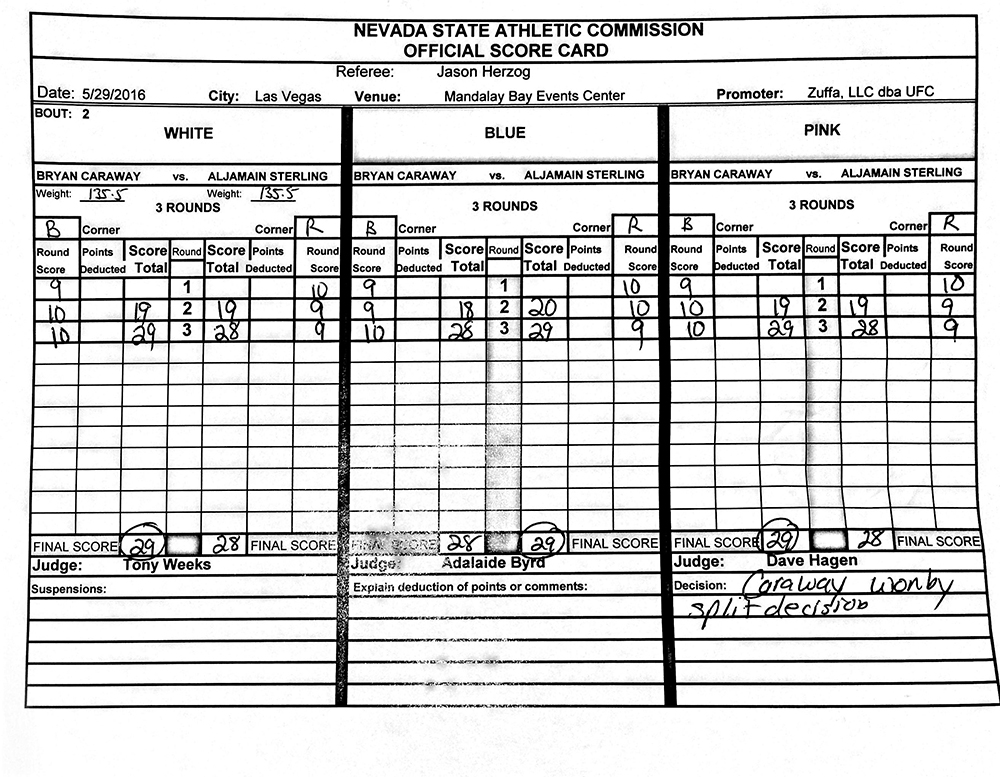 NEVADA STATE ATHLETIC COMMISSION
OFFICIAL SCORE CARD
Referee: Jason Herzog
Date: 5/29/2016 City: Las Vegas Venue: Mandalay Bay Events Center Promoter: Zuffa, LLC dba UFC
BOUT: 2
WHITE BLUE PINK
BRYAN CARAWAY vs. ALJAMAIN STERLING BRYAN CARAWAY vs. ALJAMAIN STERLING BRYAN CARAWAY vs. ALJAMAIN STERLING
Weight: 135.5 Weight: 135.5
3 ROUNDS 3 ROUNDS 3 ROUNDS
B Corner Corner R B Corner Corner R B Corner Corner R
Round Points Score Round Score Points Round Round Points Score Round Score Points Round Round Points Score Round Score Points Round
Score Deducted Total Total Deducted Score Score Deducted Total Total Deducted Score Score Deducted Total Total Deducted Score
9 1 10 9 1 10 9 1 10
10 19 2 19 9 9 18 2 20 10 10 19 2 19 9
10 29 3 28 9 10 28 3 29 9 10 29 3 28 9
FINAL SCORE 29 28 FINAL SCORE FINAL SCORE 28 29 FINAL SCORE FINAL SCORE 29 28 FINAL SCORE
Judge: Tony Weeks Judge: Adalaide Byrd Judge: Dave Hagen
Suspensions: Explain deduction of points or comments: Decision: Caraway won by
split decision